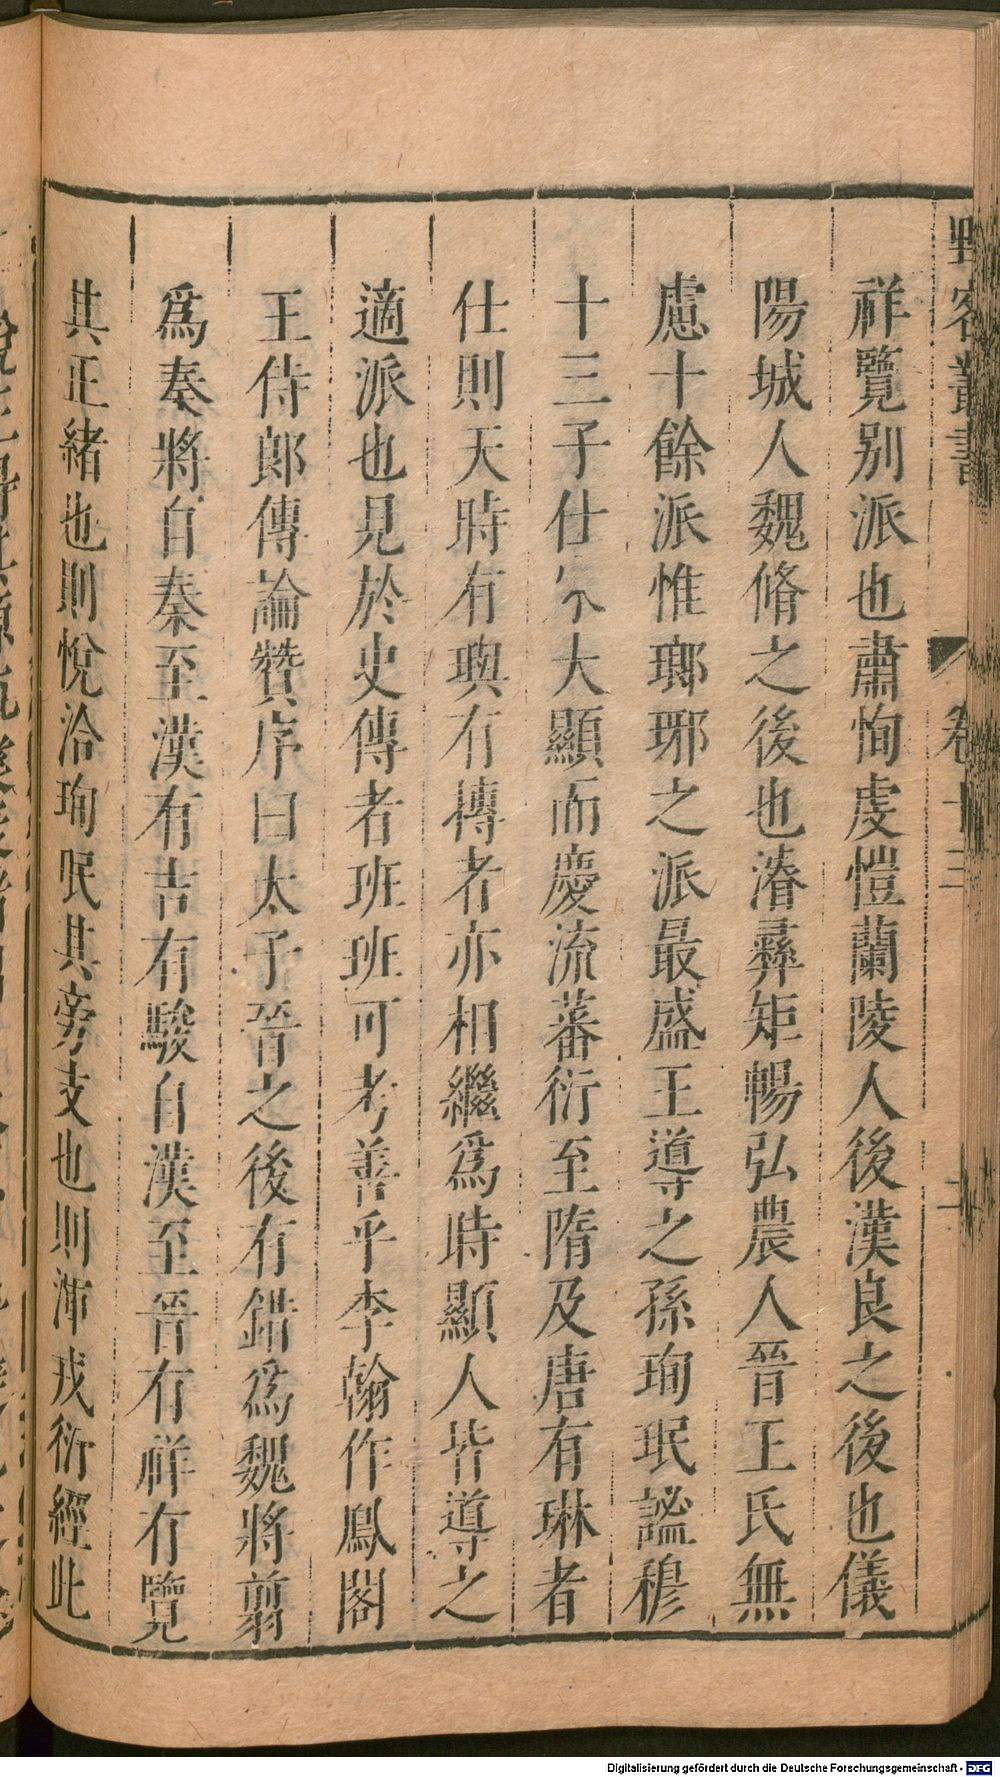 野客叢書
卷十三
二
祥覽别派也肅恂虔愷蘭陵人後漢良之後也儀
陽城人魏脩之後也濬彝矩暢弘農人晉王氏無
慮十餘派惟瑯琊之派最盛王導之孫珣珉謐穆
十三子仕宋大顯而慶流蕃衍至隋及唐有琳者
仕則天時有璵有摶者亦相繼爲時顯人皆導之
適派也見於史傳者班班可考善乎李翰作鳳閣
王侍郎傳論贊序曰太子晉之後有錯爲魏將翦
爲秦將自秦至漢有吉有駿自漢至晉有祥有覽
其正緒也則悅洽珣珉其旁支也則渾戎衍經此
Digitalisierung gefördert durch die Deutsche Forschungsgemeinschaft - DFG